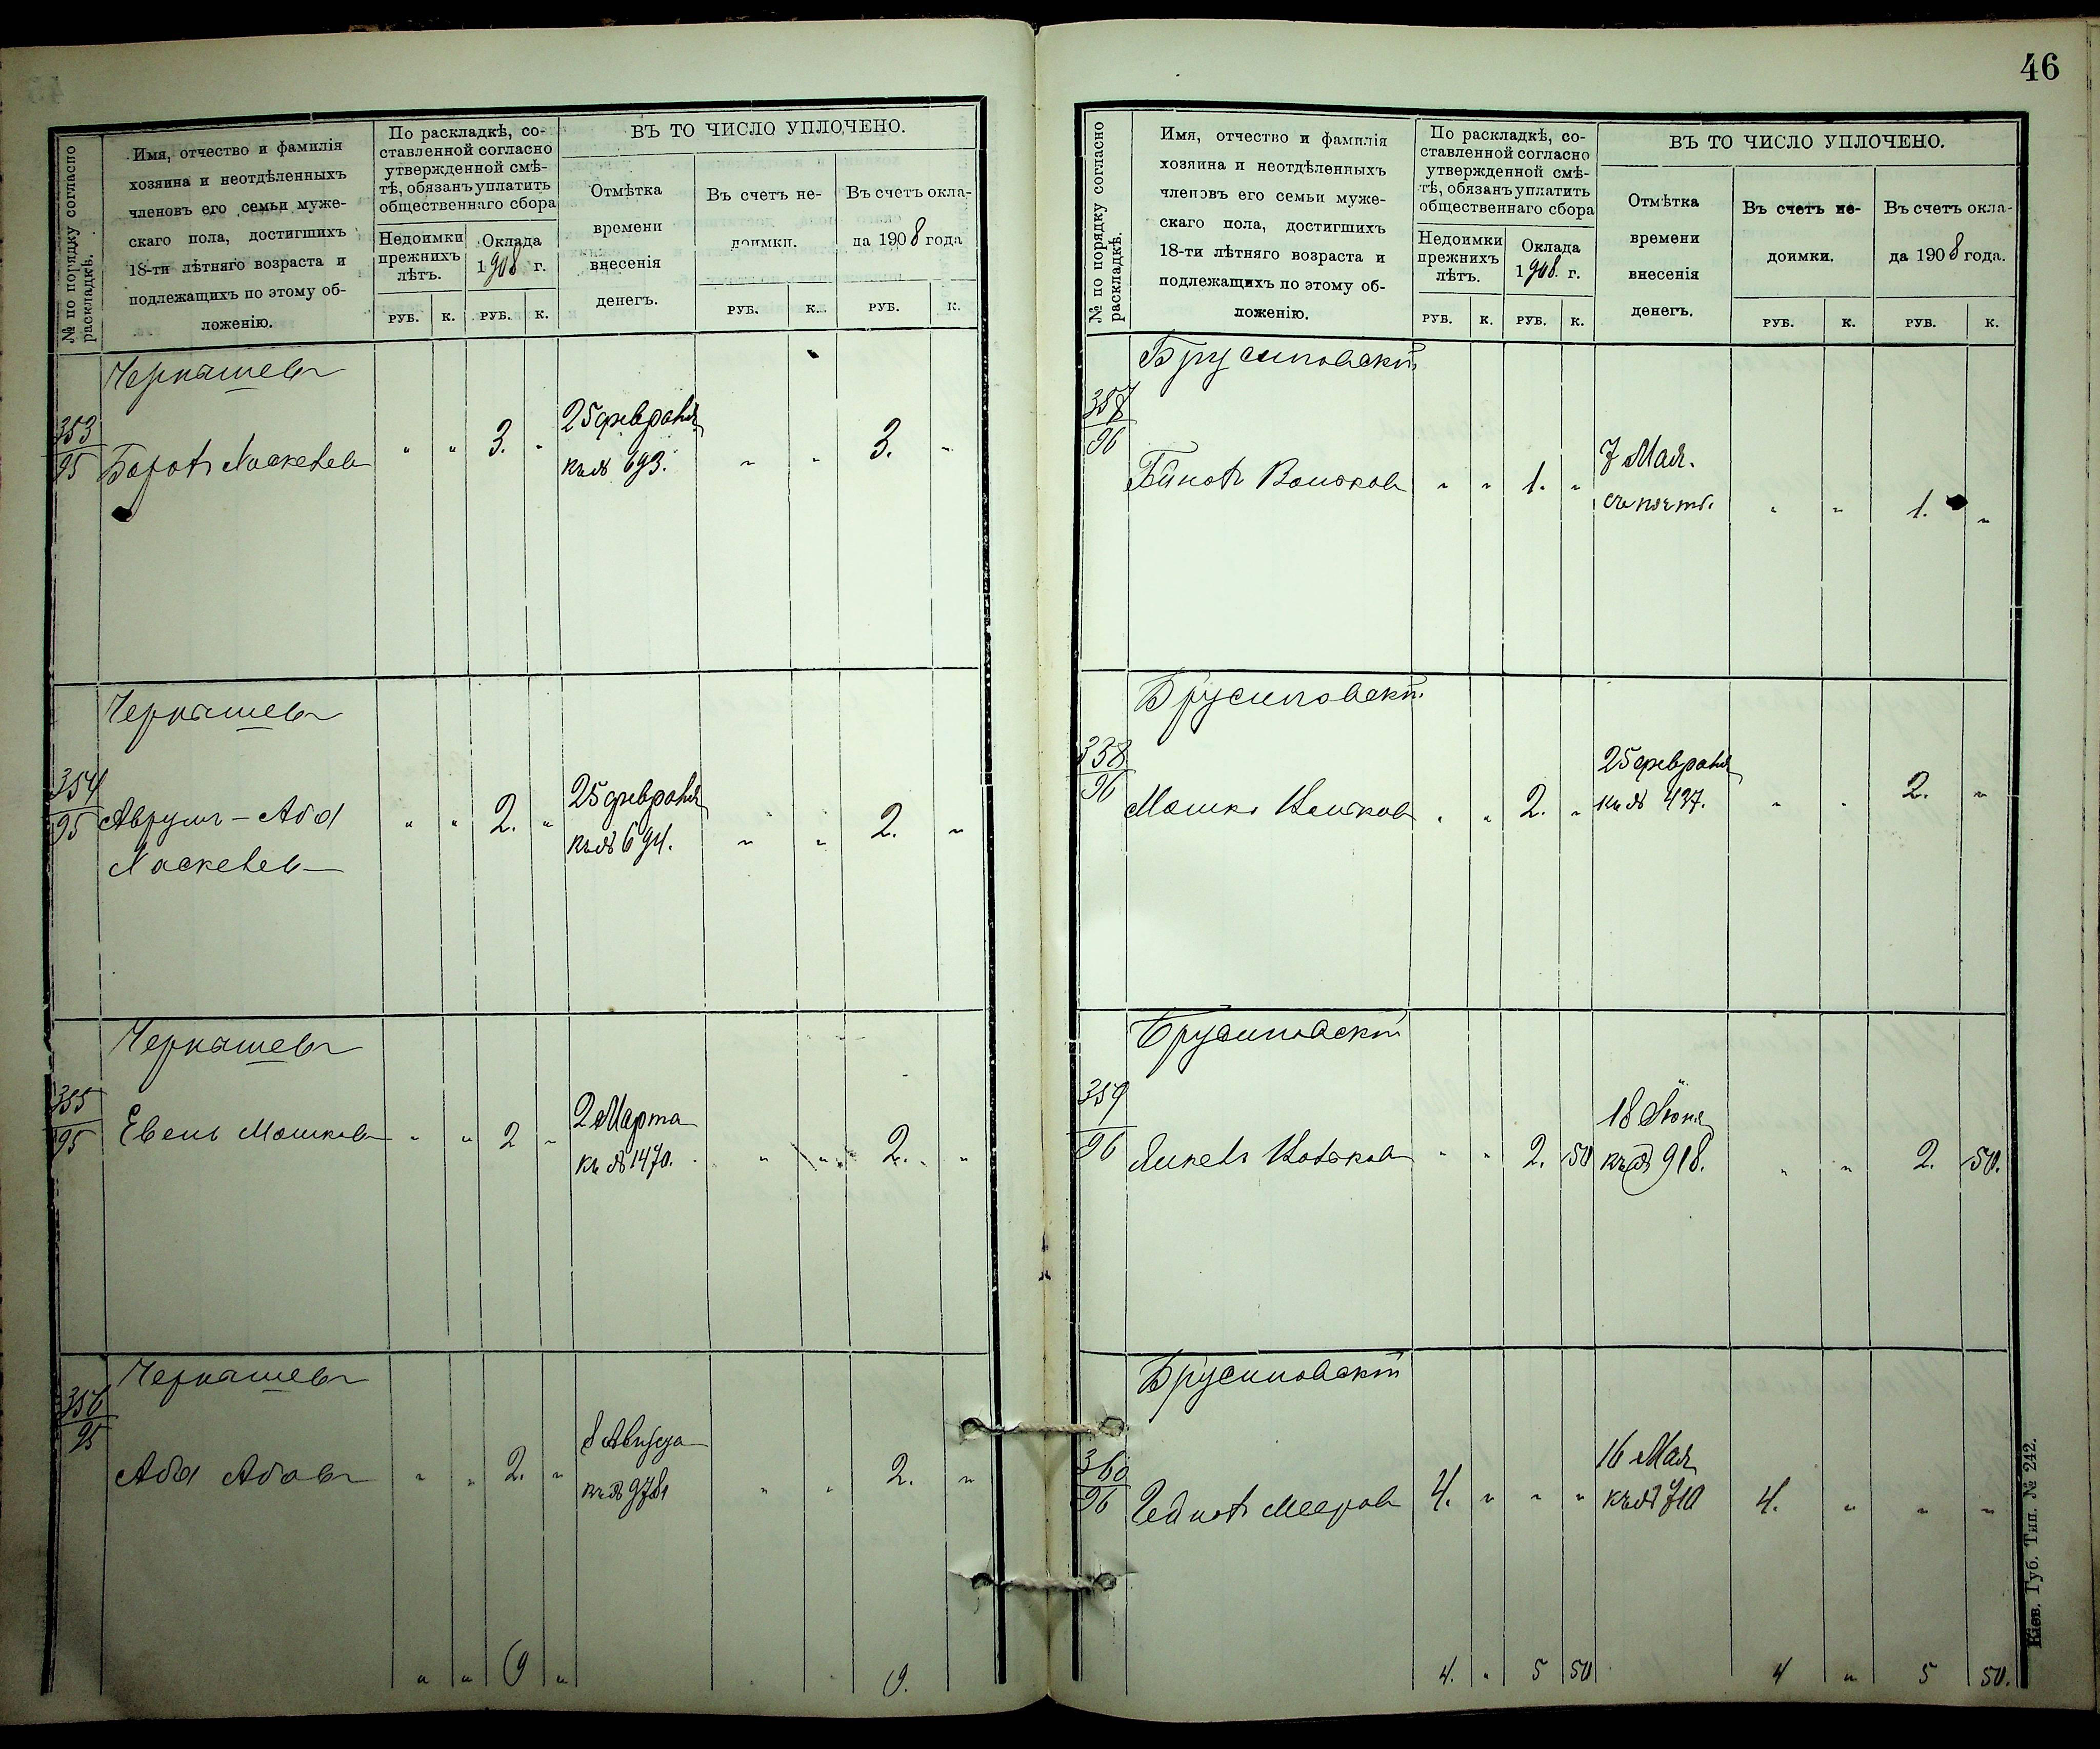 46
№ по порядку согласно раскладкѣ.
Имя, отчество и фамилія
хозяина и неотдѣленныхъ
членовъ его семьи муже-
скаго пола, достигшихъ
18-ти лѣтняго возраста и
подлежащихъ по этому об-
ложенію.
По раскладкѣ, со-
ставленной согласно
утвержденной смѣ-
тѣ, обязанъ уплатить
общественнаго сбора
Недоимки
прежнихъ
лѣтъ.
Оклада
1908 г.
РУБ. К. РУБ. К.
ВЪ ТО ЧИСЛО УПЛОЧЕНО.
Отмѣтка
времени
внесенія
денегъ.
Въ счетъ не-
доимки.
Въ счетъ окла-
да 1908 года
РУБ. К. РУБ. К.
Чернашевъ
353
95
" " 3. "
25 февраля
къ № 693.
" " 3. "
Чернашевъ
354
95
Аврумъ-Аба
" " 2. "
25 февраля
къ № 694.
" " 2. "
Чернашевъ
355
95
Евель Мошковъ
" " 2 "
2 Марта
къ № 1470.
" " 2. "
Чернашевъ
356
95
Аба Абовъ
" " 2. "
8 Августа
" " 2. "
" " 9 "
9.
№ по порядку согласно раскладкѣ.
Имя, отчество и фамилія
хозяина и неотдѣленныхъ
членовъ его семьи муже-
скаго пола, достигшихъ
18-ти лѣтняго возраста и
подлежащихъ по этому об-
ложенію.
По раскладкѣ, со-
ставленной согласно
утвержденной смѣ-
тѣ, обязанъ уплатить
общественнаго сбора
Недоимки
прежнихъ
лѣтъ.
Оклада
1908. г.
РУБ. К. РУБ. К.
ВЪ ТО ЧИСЛО УПЛОЧЕНО.
Отмѣтка
времени
внесенія
денегъ.
Въ счетъ не-
доимки.
Въ счетъ окла-
да 1908 года.
РУБ. К. РУБ. К.
Брусиловскій
357
96
" " 1. "
7 Мая.
" " 1. "
Брусиловскій
358
96
Мошко
" " 2. "
25 февраля
къ № 427.
" " 2. "
Брусиловскій
359
96
" " 2. 50
18 Июня
къ № 918.
" " 2. 50.
Брусиловскій
360
96
Мееровъ
4. " " "
16 Мая
къ № 710
4. " " "
4. " 5 50
4 " 5 50.
Кіев. Губ. Тип. № 242.